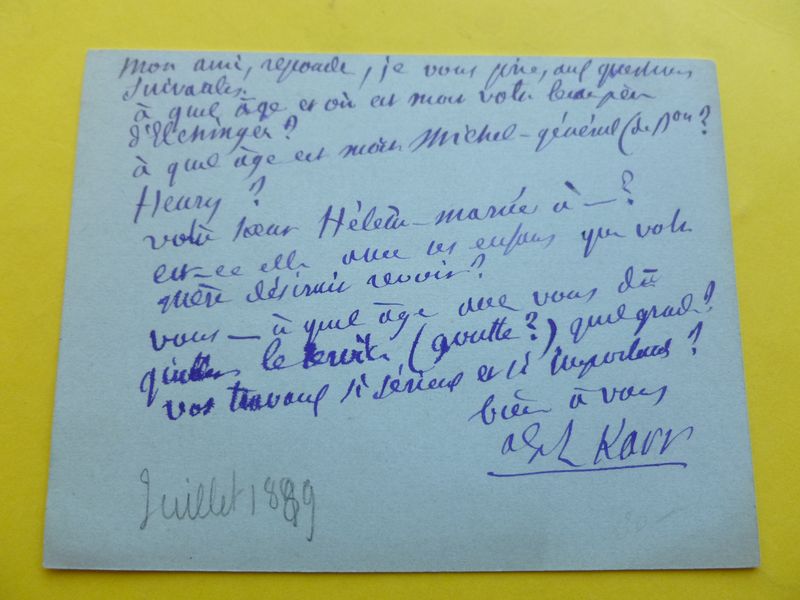 mon ami, reponde, je vous prie, aux questions
suivantes.
à quel âge et où est mort votre beau père
d'Elchinger?
à quel âge est mort Michel – général (de Don?
Henry?
votre soeur Hélène – mariée à – ?
est-ce elle avec ses enfans que votre
mère désirait revoir?
vous – à quel âge avez vous dû
quitter le service (goutte?) quel grade?
vos travaux si sérieux et si importans?
bien à vous
alph Karr
Juillet 1889